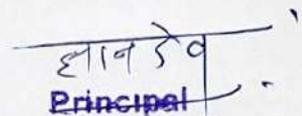 ज्ञान देव
Principal